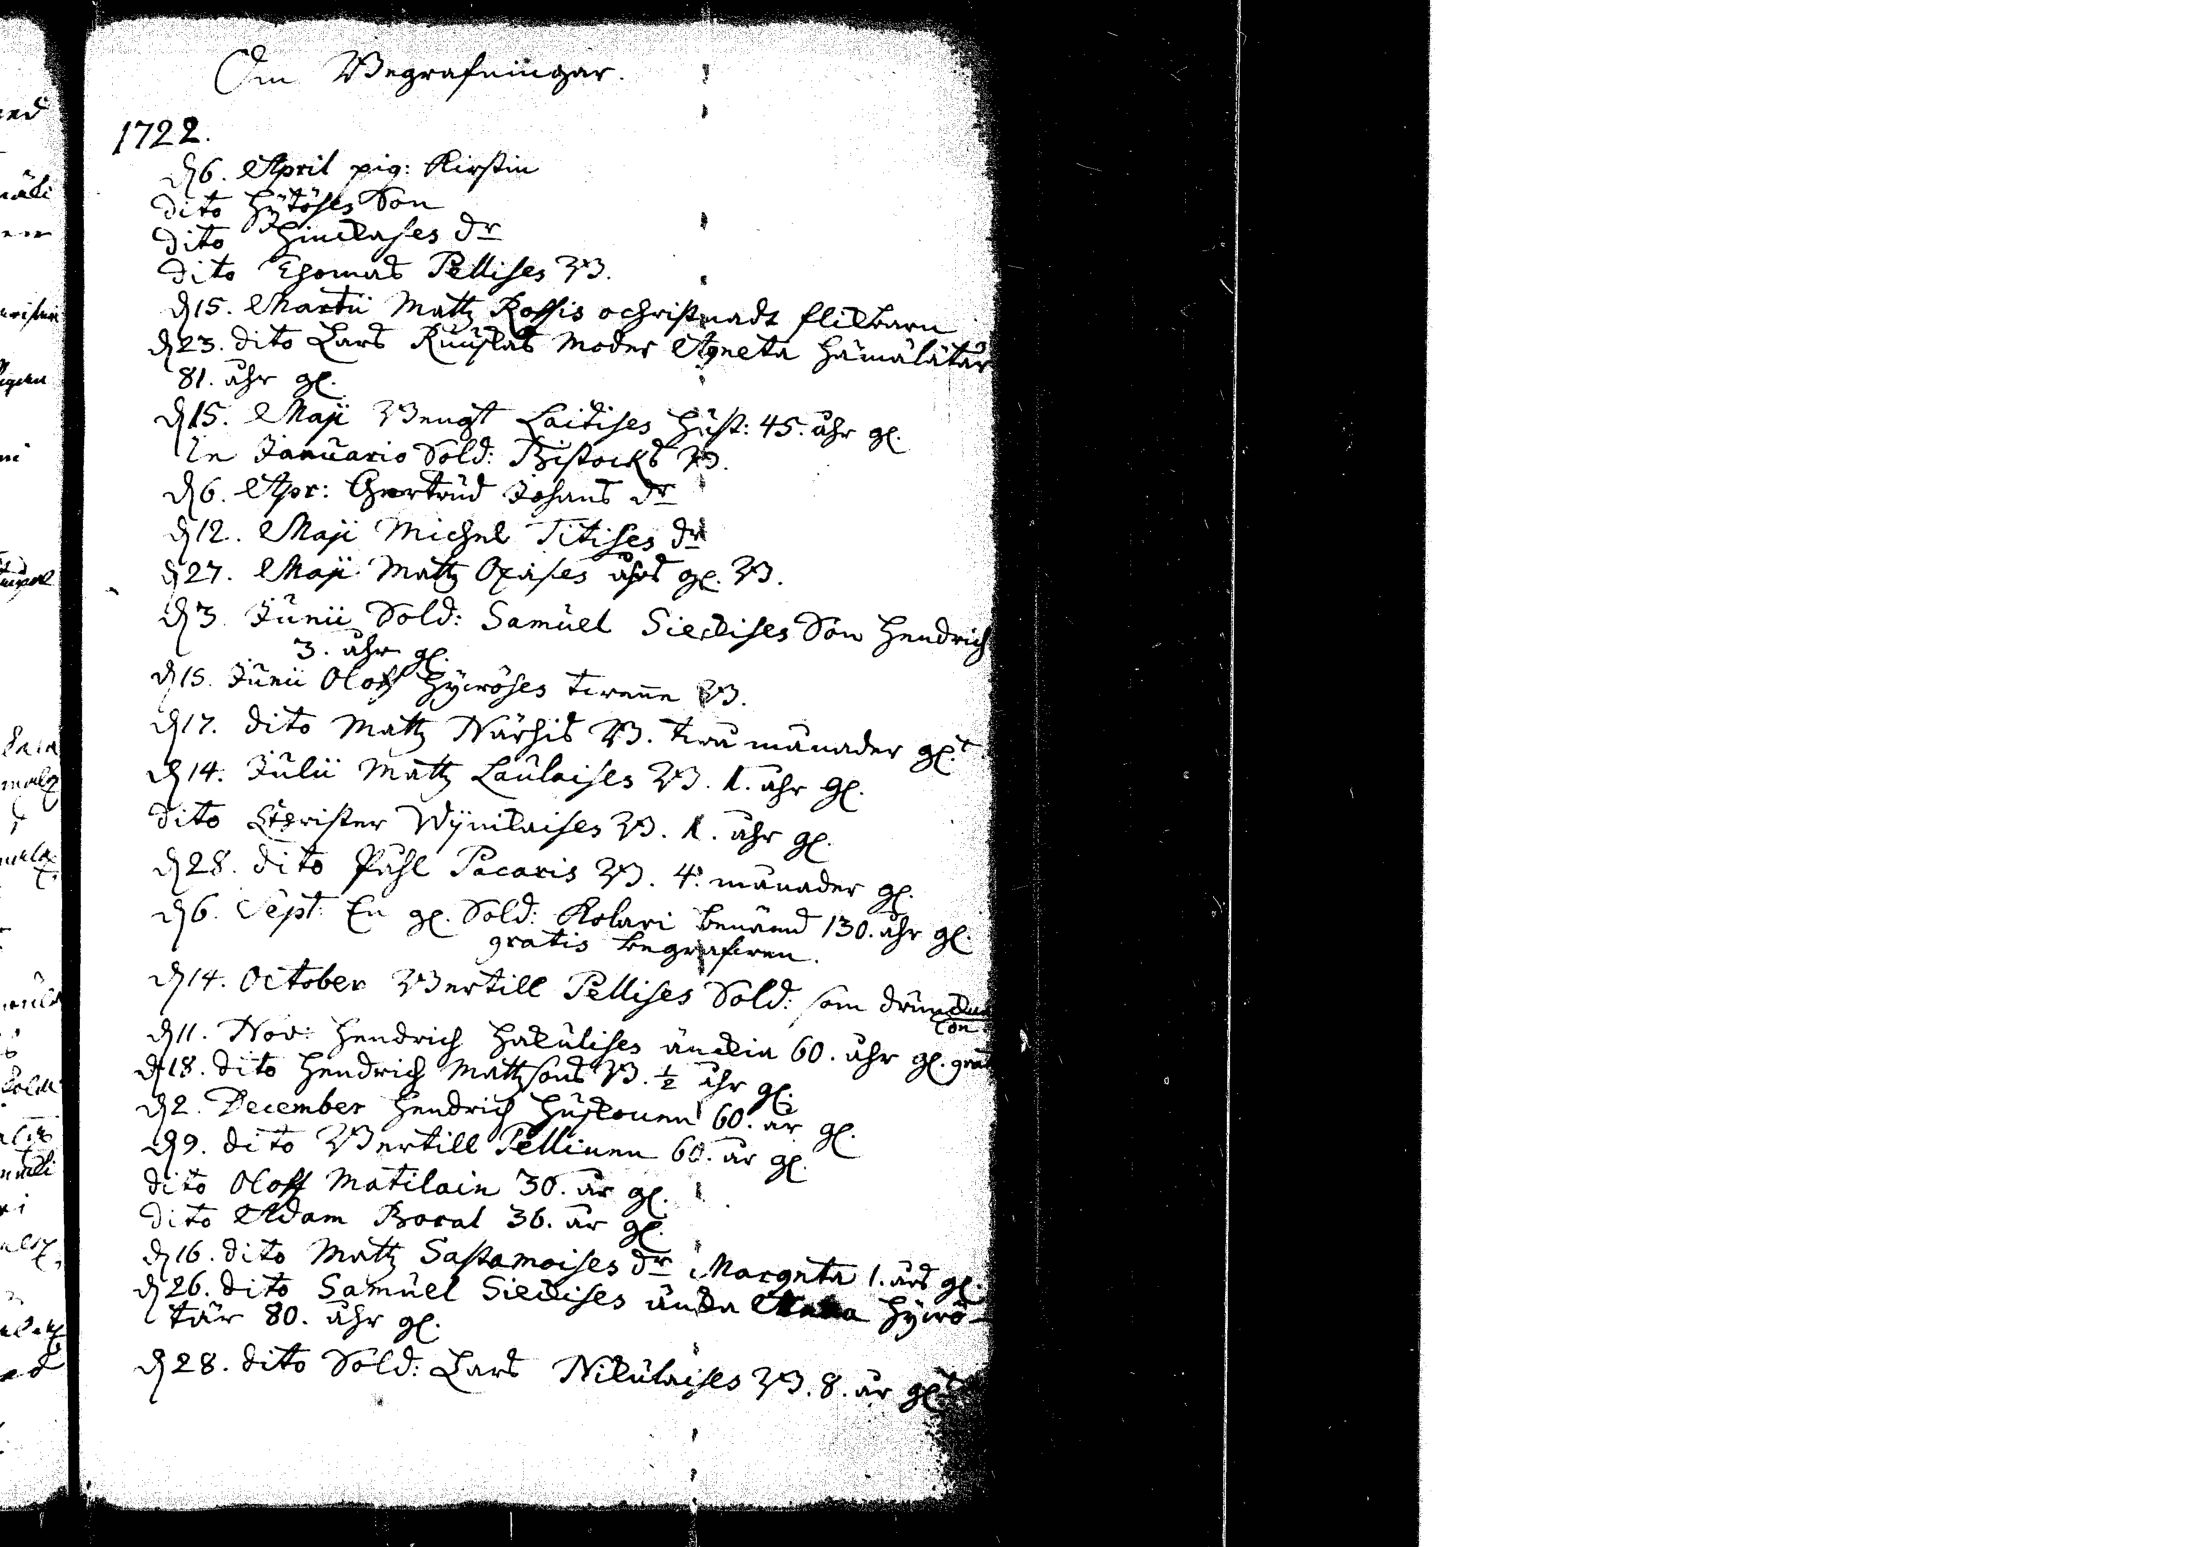 Om Begrafningar.
1722.
d 6. April pig: Kirstin
dito Hytöses Son
dito Hindases dr
dito Thomas Pellises B.
d 15. Martii Mattz Rossis ochristnadt flickbarn
d 23. dito Lars Ruuskas moder Agneta Hämälätär
81. åhr gl.
d 15. Maji Bengt Laitises Hust: 45. åhr gl.
In Januario Sold: Bistocks B.
d 6. Apr: Gertrud Johans dr
d 12. Maji Michel Titises dr
d 27. Maji Mattz Opases åhrs gl. B.
d 3. Junii Sold: Samuel Sickises Son Hendrich
3. åhr gl.
d 15. Junii Oloff Hywöses twenne B.
d 17. dito Mattz Närhis B. twå månader gl.t
d 14. Julii Mattz Laulaises B. 1. åhr gl.
dito Christer Wynikaises B. 1. åhr gl.
d 28. dito Påhl Pacaris B. 4. månader gl.
d 6. Sept: En gl. Sold: Kolari benämd 130. åhr gl.
gratis begrafwen.
d 14. October Bertill Pellises Sold: som
d 11. Nov: Hendrich Hakulises änckia 60. åhr gl.
d 18. dito Hendrich Mattzsons B. ½ åhr gl.
d 2. December Hendrich Huskonen 60. år gl.
d 9. dito Bertill Pellinen 60. år gl.
dito Oloff Matilain 30. år gl.
dito Adam Boral 36. år gl.
d 16. dito Mattz Sastamoises dr Margeta 1. års gl.
d 26. dito Samuel Sickises äncka Anna Hywö-
tär 80. åhr gl.
d 28. dito Sold: Lars Nikulaises B. 8. år gl.t